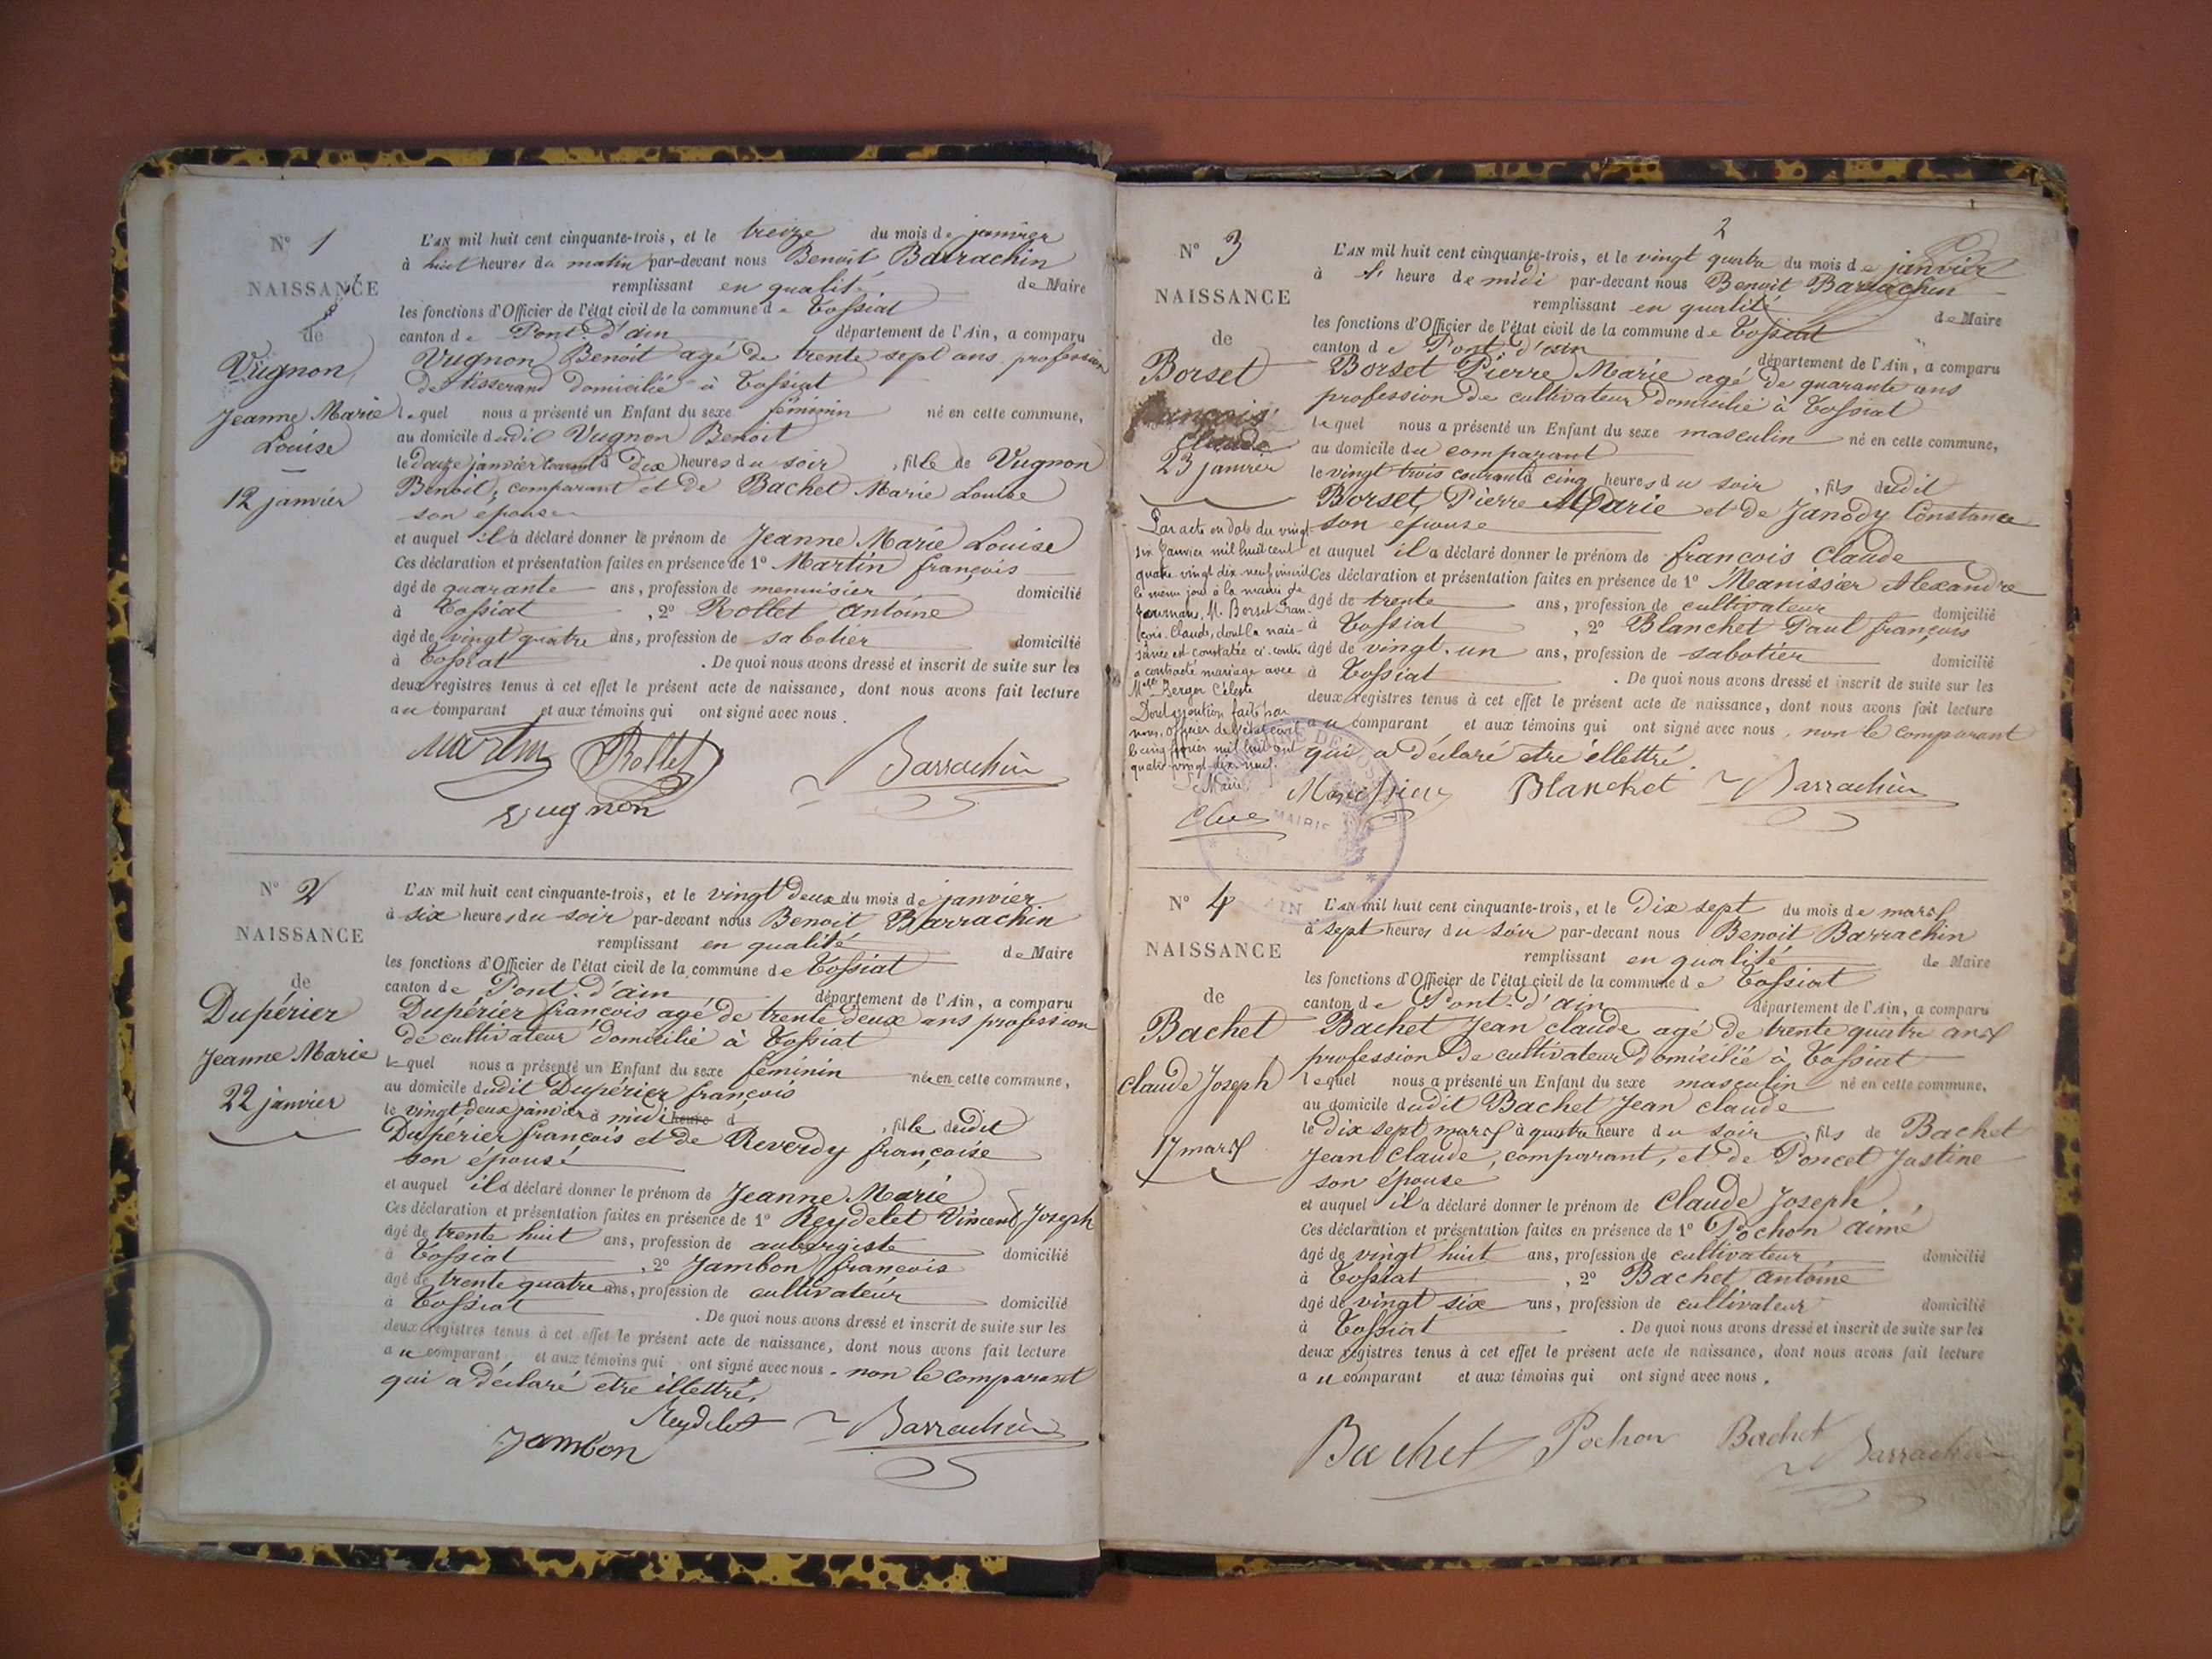 N° 1
NAISSANCE
de
Vugnon
Jeanne Marie
Louise
12 janvier
L'AN mil huit cent cinquante-trois, et le treize du mois de janvier
à huit heures du matin par-devant nous Benoit Barrachin
remplissant en qualité de Maire
les fonctions d'Officier de l'état civil de la commune de Tossiat
canton de Pont-d'ain département de l'Ain, a comparu
Vugnon Benoit agé de trente sept ans profession
de tisserand domicilié à Tossiat
lequel nous a présenté un Enfant du sexe féminin né en cette commune,
au domicile dudit Vugnon Benoit
le douze janvier courant à dix heures du soir, fille de Vugnon
Benoit, comparant et de Bachet Marie Louise
son épouse
et auquel il a déclaré donner le prénom de Jeanne Marie Louise
Ces déclaration et présentation faites en présence de 1° Martin françois
âgé de quarante ans, profession de menuisier domicilié
à Tossiat, 2° Rollet Antoine
âgé de vingt quatre ans, profession de sabotier domicilié
à Tossiat. De quoi nous avons dressé et inscrit de suite sur les
deux registres tenus à cet effet le présent acte de naissance, dont nous avons fait lecture
au comparant et aux témoins qui ont signé avec nous.
Martin Rollet Barrachin
Vugnon
N° 2
NAISSANCE
de
Dupérier
Jeanne Marie
22 janvier
L'AN mil huit cent cinquante-trois, et le vingt deux du mois de janvier
à six heures du soir par-devant nous Benoit Barrachin
remplissant en qualité de Maire
les fonctions d'Officier de l'état civil de la commune de Tossiat
canton de Pont-d'ain département de l'Ain, a comparu
Dupérier françois agé de trente deux ans profession
de cultivateur domicilié à Tossiat
lequel nous a présenté un Enfant du sexe féminin née en cette commune,
au domicile dudit Dupérier françois
le vingt deux janvier à midi heure d, fille dudit
Dupérier françois et de Reverdy françoise
son épouse
et auquel il a déclaré donner le prénom de Jeanne Marie
Ces déclaration et présentation faites en présence de 1° Reydelet Vincent Joseph
âgé de trente huit ans, profession de aubergiste domicilié
à Tossiat, 2° Jambon françois
âgé de trente quatre ans, profession de cultivateur domicilié
à Tossiat. De quoi nous avons dressé et inscrit de suite sur les
deux registres tenus à cet effet le présent acte de naissance, dont nous avons fait lecture
au comparant et aux témoins qui ont signé avec nous. non le comparant
qui a déclaré etre illettré.
Reydelet Barrachin
Jambon
2
N° 3
NAISSANCE
de
Borset
françois
Claude
23 janvier
Par acte en date du vingt
six Janvier mil huit cent
quatre vingt dix neuf inscrit
le même jour à la mairie de
M. Borset Fran-
çois Claude, dont la nais-
sance est constatée ci-contre
a contracté mariage avec
Mlle Berger Céleste
Dont mention faite par
nous, officier de l'état civil
le cinq février mil huit cent
quatre vingt dix neuf.
Le Maire
L'AN mil huit cent cinquante-trois, et le vingt quatre du mois de janvier
à heure de midi par-devant nous Benoit Barrachin
remplissant en qualité de Maire
les fonctions d'Officier de l'état civil de la commune de Tossiat
canton de Pont-d'ain département de l'Ain, a comparu
Borset Pierre Marie agé de quarante ans
profession de cultivateur domicilié à Tossiat
lequel nous a présenté un Enfant du sexe masculin né en cette commune,
au domicile du comparant
le vingt trois courant à cinq heures du soir, fils dudit
Borset Pierre Marie et de Janody Constance
son épouse
et auquel il a déclaré donner le prénom de françois Claude
Ces déclaration et présentation faites en présence de 1° Manissier Alexandre
âgé de trente ans, profession de cultivateur domicilié
à Tossiat, 2° Blanchet Paul françois
âgé de vingt-un ans, profession de sabotier domicilié
à Tossiat. De quoi nous avons dressé et inscrit de suite sur les
deux registres tenus à cet effet le présent acte de naissance, dont nous avons fait lecture
au comparant et aux témoins qui ont signé avec nous, non le comparant
qui a déclaré etre illettré.
Manissier Blanchet Barrachin
MAIRIE
AIN
N° 4
NAISSANCE
de
Bachet
claude Joseph
17 mars
L'AN mil huit cent cinquante-trois, et le Dix sept du mois de mars
à sept heures du soir par-devant nous Benoit Barrachin
remplissant en qualité de Maire
les fonctions d'Officier de l'état civil de la commune de Tossiat
canton de Pont-d'ain département de l'Ain, a comparu
Bachet Jean claude agé de trente quatre ans
profession de cultivateur domicilié à Tossiat
lequel nous a présenté un Enfant du sexe masculin né en cette commune,
au domicile dudit Bachet Jean claude
le Dix sept mars à quatre heure du soir, fils de Bachet
Jean Claude, comparant, et de Poncet Justine
son épouse
et auquel il a déclaré donner le prénom de Claude Joseph.
Ces déclaration et présentation faites en présence de 1° Pochon aimé
âgé de vingt huit ans, profession de cultivateur domicilié
à Tossiat, 2° Bachet antoine
âgé de vingt six ans, profession de cultivateur domicilié
à Tossiat. De quoi nous avons dressé et inscrit de suite sur les
deux registres tenus à cet effet le présent acte de naissance, dont nous avons fait lecture
au comparant et aux témoins qui ont signé avec nous.
Bachet Pochon Bachet Barrachin